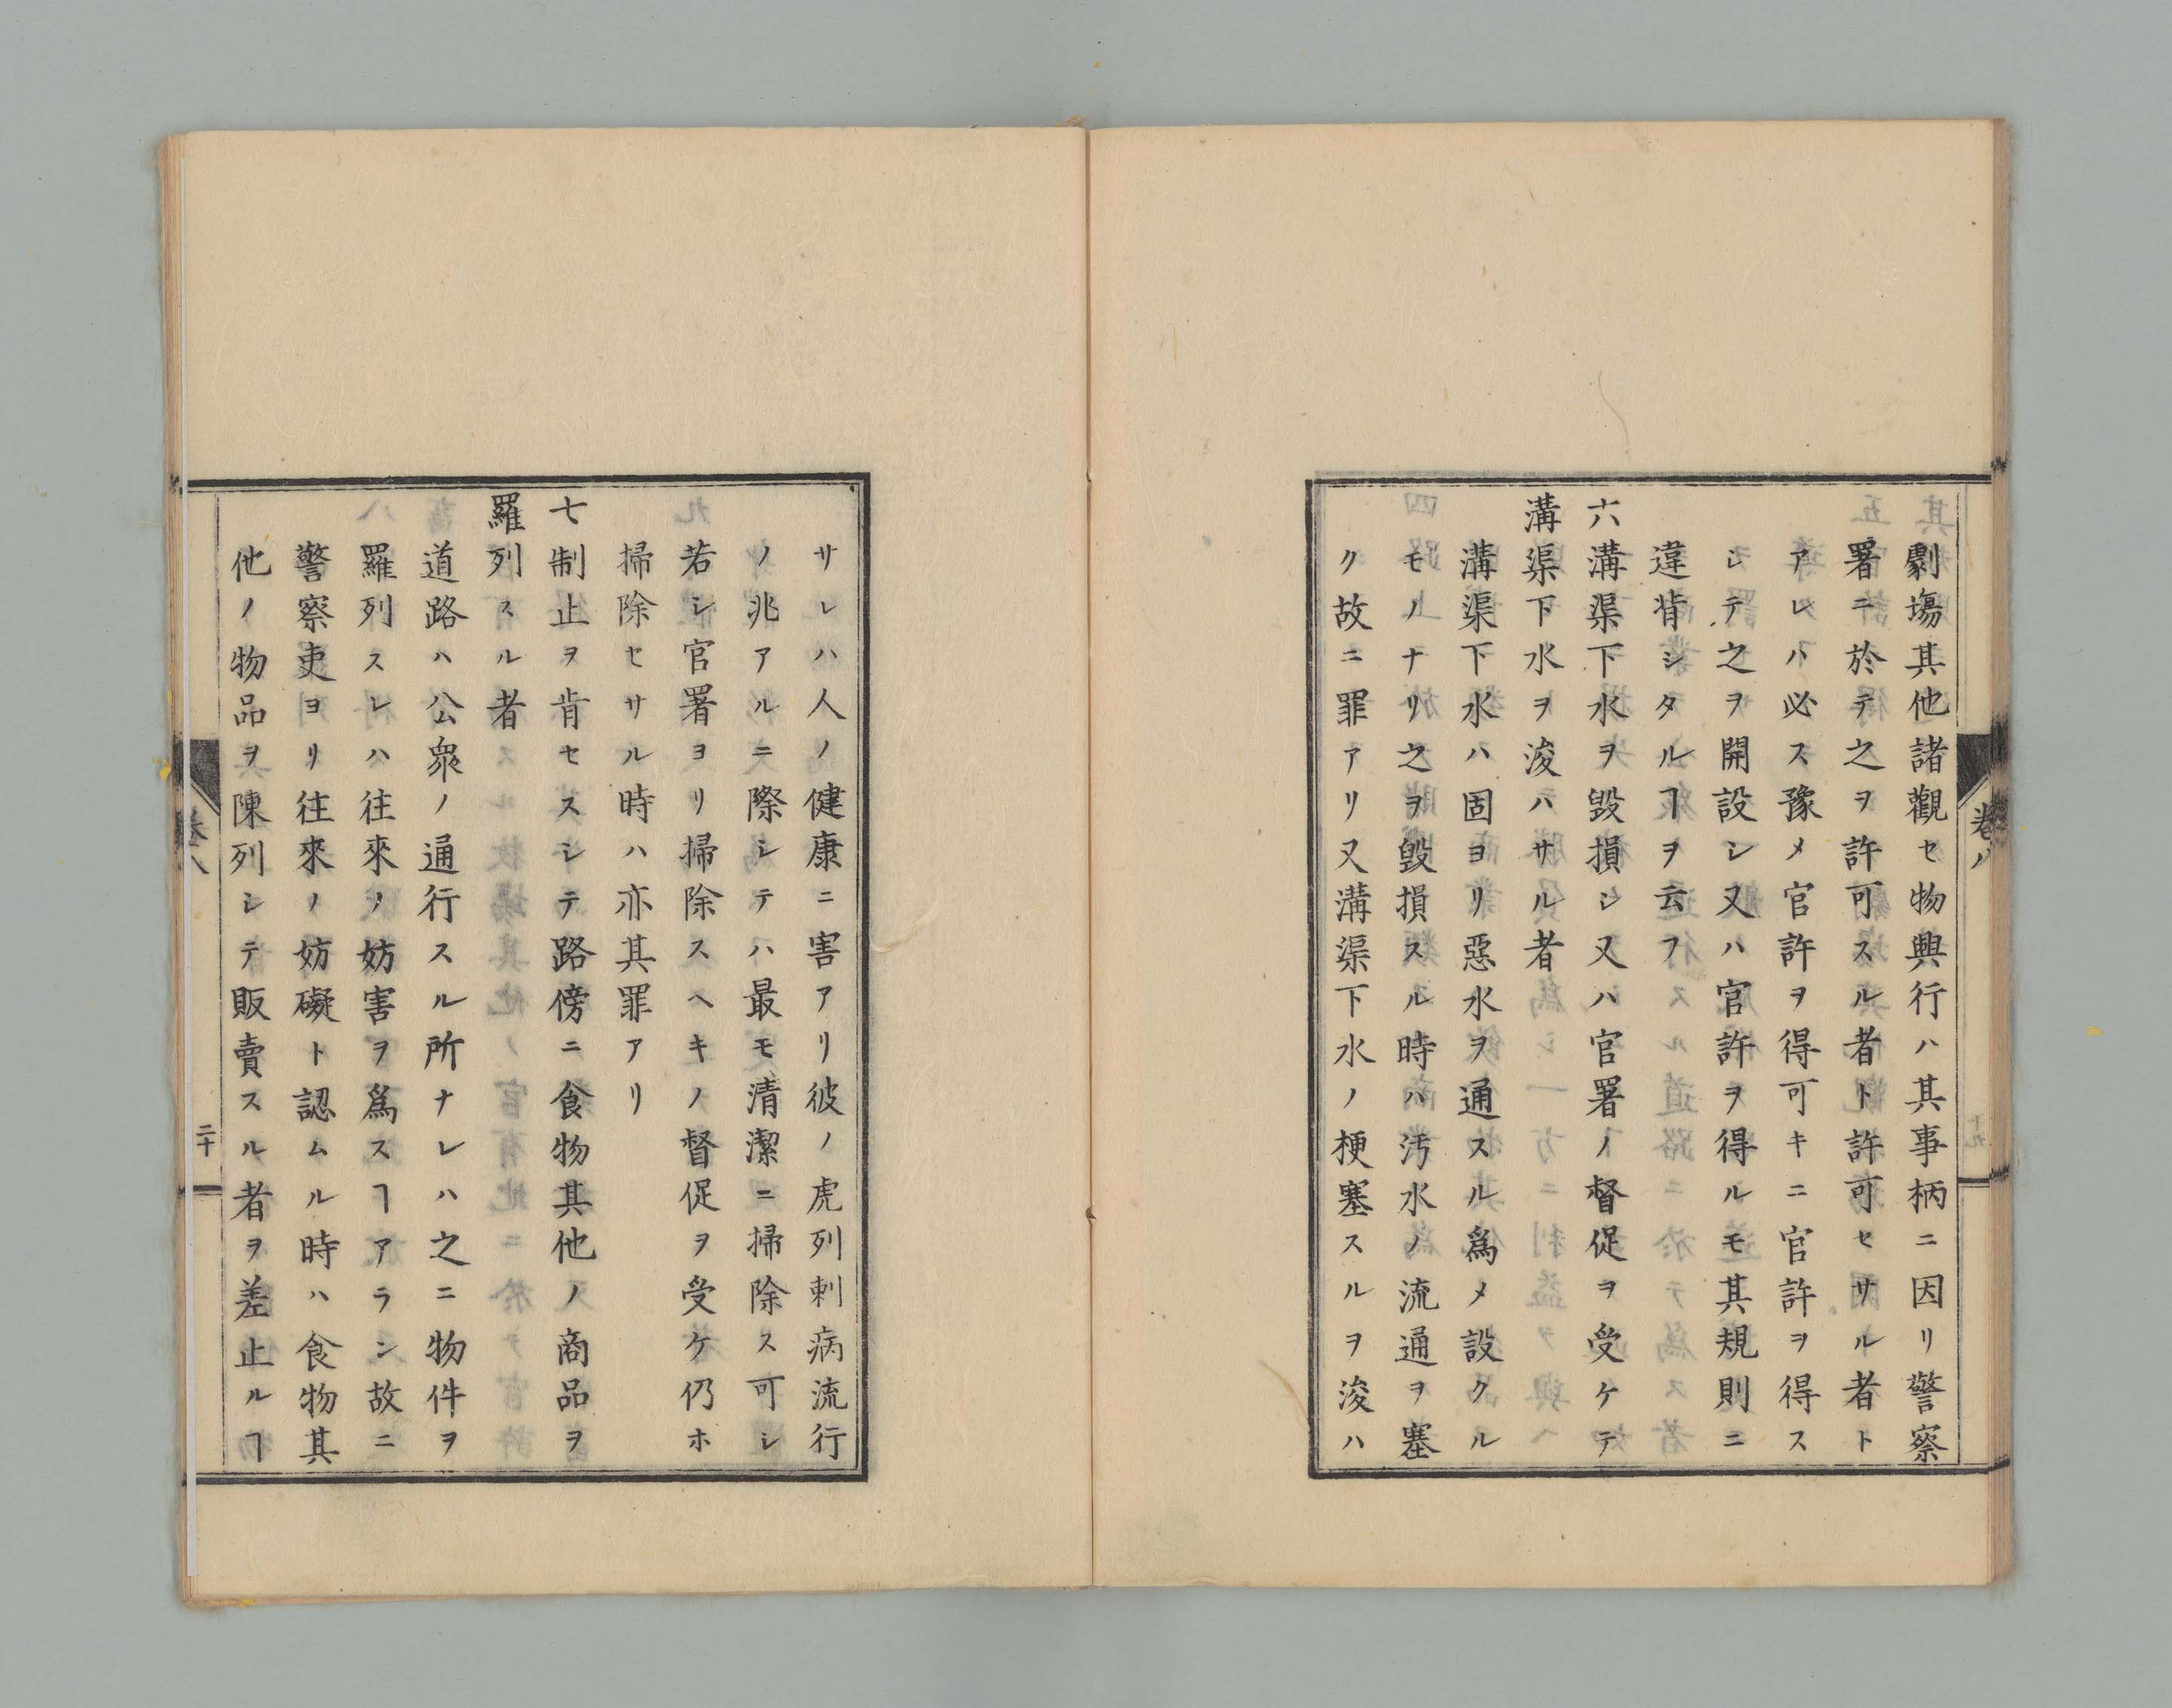 劇塲其他諸觀セ物興行ハ其事柄ニ因リ警察
署ニ於テ之ヲ許可スル者ト許可セサル者ト
アレハ必ス豫メ官許ヲ得可キニ官許ヲ得ス
シテ之ヲ開設シ又ハ官許ヲ得ルモ其規則ニ
違背シタルヿヲ云フ
六溝渠下水ヲ毀損シ又ハ官署ノ督促ヲ受ケテ
溝渠下水ヲ浚ハサル者
溝渠下水ハ固ヨリ惡水ヲ通スル爲メ設クル
モノナリ之ヲ毀損スル時ハ汚水ノ流通ヲ塞
ク故ニ罪アリ又溝渠下水ノ梗塞スルヲ浚ハ
卷八
サレハ人ノ健康ニ害アリ彼ノ虎列剌病流行
ノ兆アルニ際シテハ最モ清潔ニ掃除ス可シ
若シ官署ヨリ掃除スヘキノ督促ヲ受ケ仍ホ
掃除セサル時ハ亦其罪アリ
七制止ヲ肯セスシテ路傍ニ食物其他ノ商品ヲ
羅列スル者
道路ハ公衆ノ通行スル所ナレハ之ニ物件ヲ
羅列スレハ往來ノ妨害ヲ爲スヿアラン故ニ
警察吏ヨリ往來ノ妨礙ト認ムル時ハ食物其
他ノ物品ヲ陳列シテ販賣スル者ヲ差止ルヿ
卷八
二十